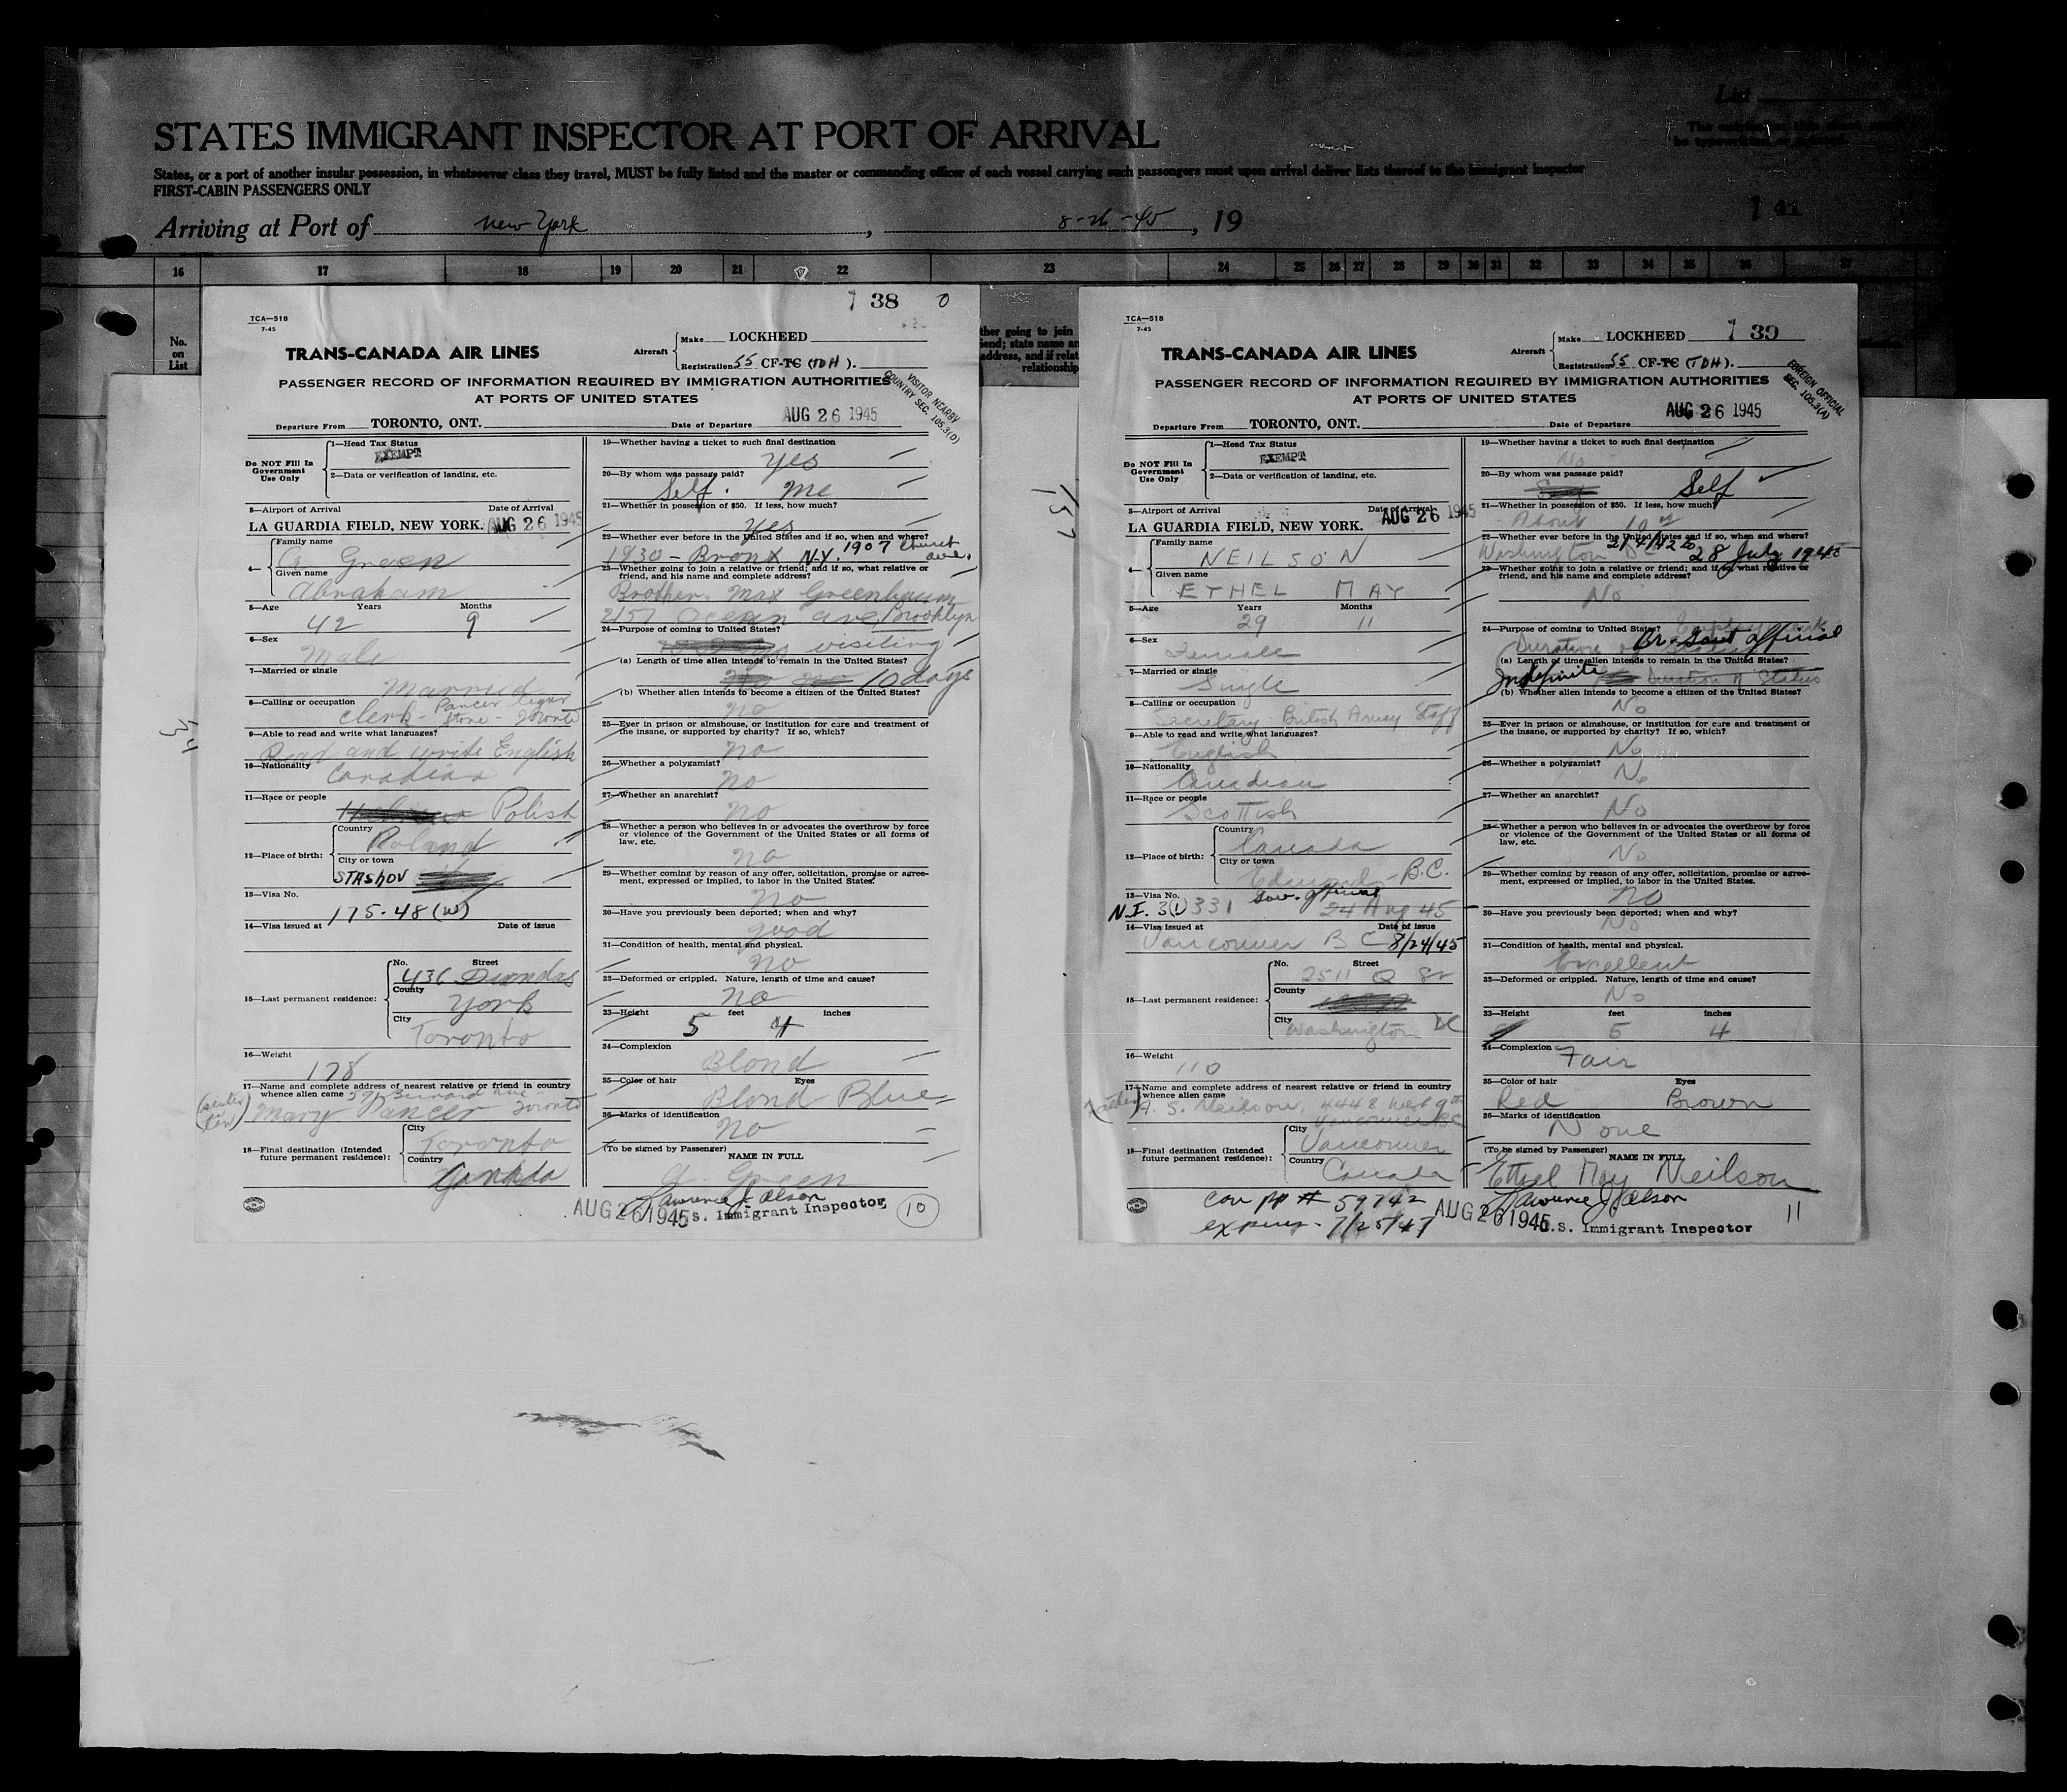 STATES IMMIGRANT INSPECTOR AT PORT OF ARRIVAL
States, or a port of another insular possession, in whatsoever class they travel, MUST be fully listed and the master or commanding officer of each vessel carrying such passengers must upon arrival deliver lists thereof to the immigrant inspector
FIRST-CABIN PASSENGERS ONLY
Arriving at Port of New York, 8-26-45, 19
16 17 18 19 20 21 22 23 24 25 26 27 28 29 30 31 32 33 34 35 36 37
No.
on
List
138 0
TCA—518
7-45
TRANS-CANADA AIR LINES
Aircraft
Make LOCKHEED
Registration 55 CF-TC (TDH).
PASSENGER RECORD OF INFORMATION REQUIRED BY IMMIGRATION AUTHORITIES
AT PORTS OF UNITED STATES
VISITOR NEARBY
COUNTRY SEC. 105.3(D)
Departure From TORONTO, ONT. Date of Departure AUG 26 1945
Do NOT Fill In
Government
Use Only
1—Head Tax Status
EXEMPT
2—Data or verification of landing, etc.
3—Airport of Arrival Date of Arrival
LA GUARDIA FIELD, NEW YORK. AUG 26 1945
4—
Family name
Green
Given name
Abraham
5—Age Years Months
42 9
6—Sex
Male
7—Married or single
Married
8—Calling or occupation
Clerk - Pancer
Store - Toronto
9—Able to read and write what languages?
Read and write English
10—Nationality
Canadian
11—Race or people
Polish
12—Place of birth:
Country
Poland
City or town
STAShOV
13—Visa No.
175.48 (w)
14—Visa issued at Date of issue
15—Last permanent residence:
No. Street
436 Dundas
County
York
City
Toronto
16—Weight
178
17—Name and complete address of nearest relative or friend in country
whence alien came
Mary Pancer Toronto
18—Final destination (Intended
future permanent residence):
City
Toronto
Country
Canada
19—Whether having a ticket to such final destination
Yes
20—By whom was passage paid?
Self. Me
21—Whether in possession of $50. If less, how much?
Yes
22—Whether ever before in the United States and if so, when and where?
1930 - Bronx N.Y. 1907 Church ave.
23—Whether going to join a relative or friend; and if so, what relative or
friend, and his name and complete address?
Brother. Max Greenbaum
2157 Ocean ave, Brooklyn
24—Purpose of coming to United States?
visiting
(a) Length of time alien intends to remain in the United States?
10 days
(b) Whether alien intends to become a citizen of the United States?
no
25—Ever in prison or almshouse, or institution for care and treatment of
the insane, or supported by charity? If so, which?
no
26—Whether a polygamist?
no
27—Whether an anarchist?
no
28—Whether a person who believes in or advocates the overthrow by force
or violence of the Government of the United States or all forms of
law, etc.
no
29—Whether coming by reason of any offer, solicitation, promise or agree-
ment, expressed or implied, to labor in the United States.
No
30—Have you previously been deported; when and why?
good
31—Condition of health, mental and physical.
No
32—Deformed or crippled. Nature, length of time and cause?
no
33—Height feet inches
5 4
34—Complexion
Blond
35—Color of hair Eyes
Blond Blue
36—Marks of identification
No
(To be signed by Passenger)
NAME IN FULL
Green
Lawrence J. Olson
AUG 26 1945 U.S. Immigrant Inspector 10
139
TCA—518
7-45
TRANS-CANADA AIR LINES
Aircraft
Make LOCKHEED
Registration 55 CF-TC (TDH).
PASSENGER RECORD OF INFORMATION REQUIRED BY IMMIGRATION AUTHORITIES
AT PORTS OF UNITED STATES
FOREIGN OFFICIAL
SEC. 105.3(A)
Departure From TORONTO, ONT. Date of Departure AUG 26 1945
Do NOT Fill In
Government
Use Only
1—Head Tax Status
EXEMPT
2—Data or verification of landing, etc.
3—Airport of Arrival Date of Arrival
LA GUARDIA FIELD, NEW YORK. AUG 26 1945
4—
Family name
NEILSON
Given name
ETHEL MAY
5—Age Years Months
29 11
6—Sex
Female
7—Married or single
Single
8—Calling or occupation
Secretary - British Army Staff
9—Able to read and write what languages?
English
10—Nationality
Canadian
11—Race or people
Scottish
12—Place of birth:
Country
Canada
City or town
Edmonds - B.C.
13—Visa No. Gov. Official
N.I. 3(1) 331 24 Aug 45
14—Visa issued at Date of issue
Vancouver B C 8/24/45
15—Last permanent residence:
No. Street
2511 Q St
County
City
Washington DC
16—Weight
110
17—Name and complete address of nearest relative or friend in country
whence alien came
(Father) A. S. Neilson, 4448 West 9th
Vancouver BC
18—Final destination (Intended
future permanent residence):
City
Vancouver
Country
Canada
19—Whether having a ticket to such final destination
No
20—By whom was passage paid?
Self
21—Whether in possession of $50. If less, how much?
About 10
22—Whether ever before in the United States and if so, when and where?
Washington DC 2/4/42 to 28 July 1945
23—Whether going to join a relative or friend; and if so, what relative or
friend, and his name and complete address?
No
24—Purpose of coming to United States?
Br. Govt official
(a) Length of time alien intends to remain in the United States?
Indefinite Duration of Status
(b) Whether alien intends to become a citizen of the United States?
No
25—Ever in prison or almshouse, or institution for care and treatment of
the insane, or supported by charity? If so, which?
No
26—Whether a polygamist?
No
27—Whether an anarchist?
No
28—Whether a person who believes in or advocates the overthrow by force
or violence of the Government of the United States or all forms of
law, etc.
No
29—Whether coming by reason of any offer, solicitation, promise or agree-
ment, expressed or implied, to labor in the United States.
No
30—Have you previously been deported; when and why?
No
31—Condition of health, mental and physical.
Excellent
32—Deformed or crippled. Nature, length of time and cause?
No
33—Height feet inches
5 4
34—Complexion
Fair
35—Color of hair Eyes
Red Brown
36—Marks of identification
None
(To be signed by Passenger)
NAME IN FULL
Ethel May Neilson
Can pp # 59742 Lawrence J. Olson
expires - 7/25/47 AUG 26 1945 U.S. Immigrant Inspector 11